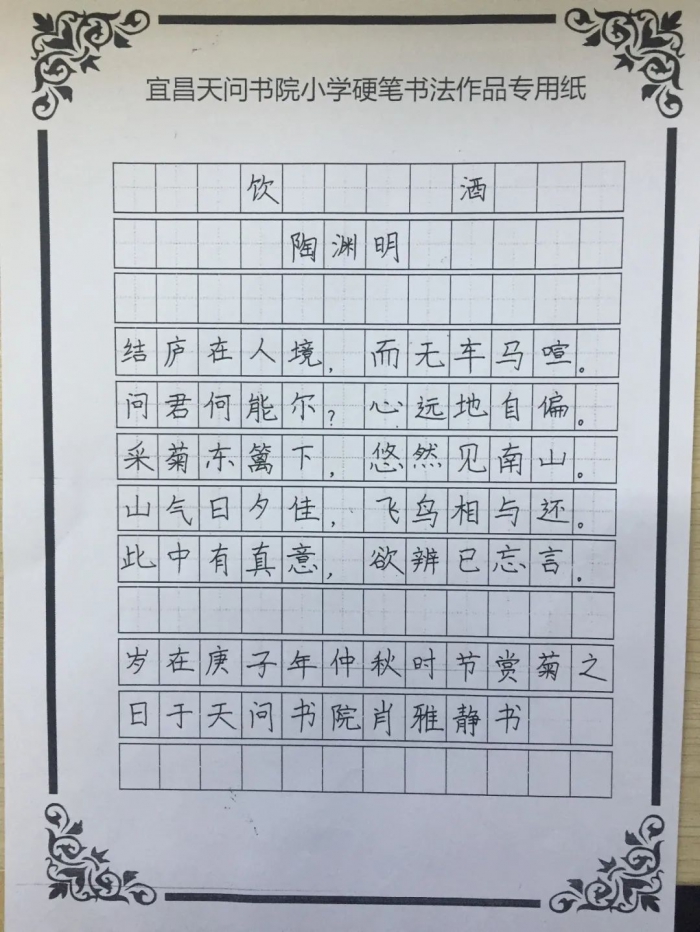 宜昌天问书院小学硬笔书法作品专用纸
饮 酒
陶渊明
结庐在人境，而无车马喧。
问君何能尔？心远地自偏。
采菊东篱下，悠然见南山。
山气日夕佳，飞鸟相与还。
此中有真意，欲辨已忘言。
岁在庚子年仲秋时节赏菊之
日于天问书院肖雅静书